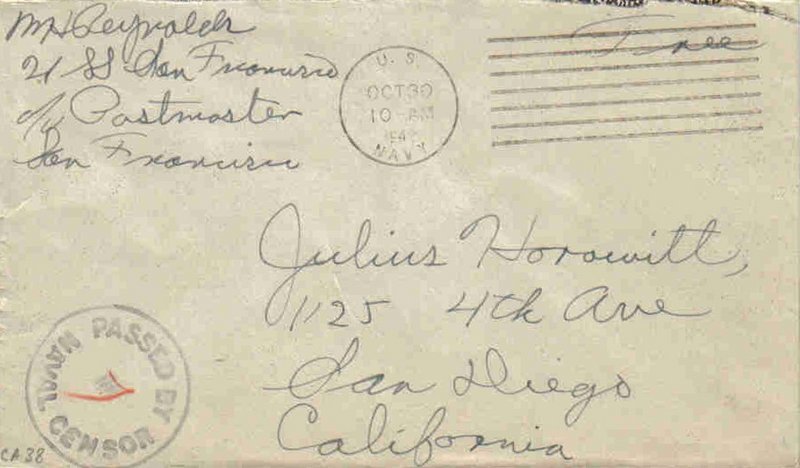 MH Reynolds
USS San Francisco
c/o Postmaster
San Francisco
U.S.
OCT 30
10-AM
194
NAVY
Free
Julius Horowitt,
1125 4th Ave
San Diego
California
PASSED BY
NAVAL
CENSOR
CA38